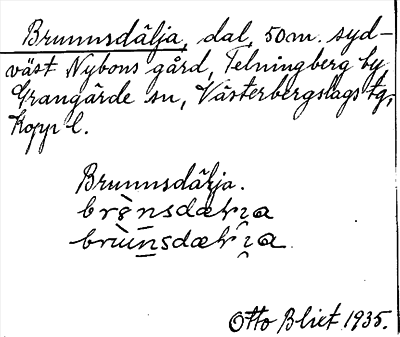 Brunnsdälja, dal, 50 m. syd-
väst Nybons gård, Telningberg by
Grangärde sn, Västerbergslags tg,
Kopp l.
Brunnsdälja.
Otto Blixt 1935.